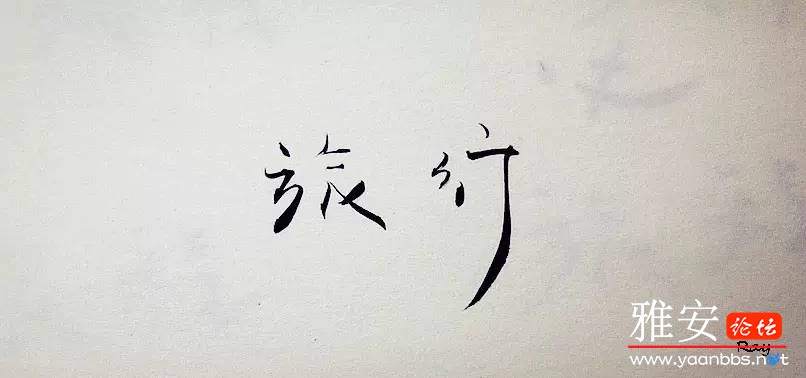 旅行
雅安论坛
Ray
www.yaanbbs.net